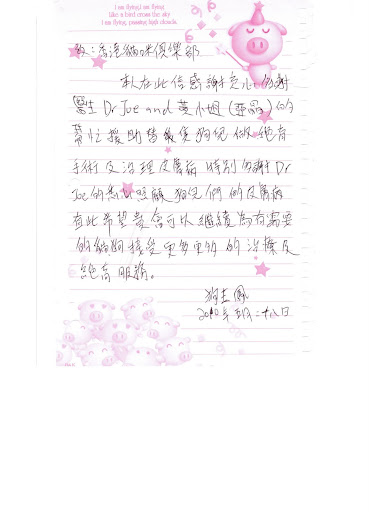 I am flying I am flying
Like a bird cross the sky
I am flying passing high clouds.
致：香港貓咪俱樂部
本人在此信感謝愛心的謝
醫生 Dr Joe and 黃小姐 (亞晶) 的
幫忙援助替幾隻狗兒做絕育
手術及治理皮膚病 特別的謝 Dr
Joe 的悉心照顧狗兒們的皮膚病
在此希望貴會可以繼續為有需要
的貓狗接受更多更好的治療及
絕育服務。
狗主
2010年 五月二十八日